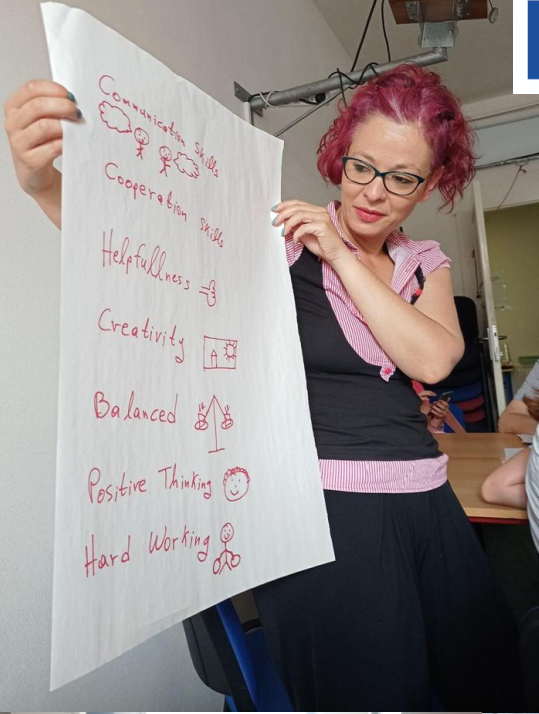 Communication Skills
Cooperation skills
Helpfullness
Creativity
Balanced
Positive Thinking
Hard Working